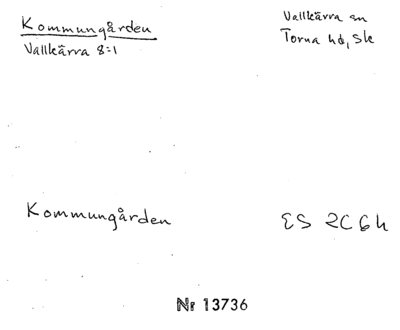 Kommungården
Vallkärra 8:1
Vallkärra sn
Torna hd, Sk
Kommungården
ES 2C6h
Nr 13736